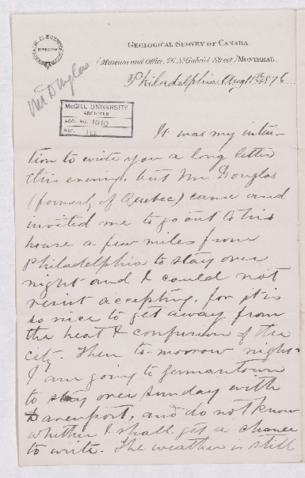 GEOLOGICAL SURVEY OF CANADA
Museum and Office, 76 St Gabriel Street, MONTREAL.
Philadelphia, Aug 1876.
Mr Douglas
McGILL UNIVERSITY
ARCHIVES
ACC. NO. 1010
REF.
It was my inten-
tion to write you a long letter
this evening, but Mr Douglas
(formerly of Quebec) came and
invited me to go out to his
house a few miles from
Philadelphia to stay over
night and I could not
resist accepting, for it is
so nice to get away from
the heat & confusion of the
city. Then to-morrow night
I am going to Germantown
to stay over Sunday with
Davenport, and do not know
whether I shall get a chance
to write. The weather is still